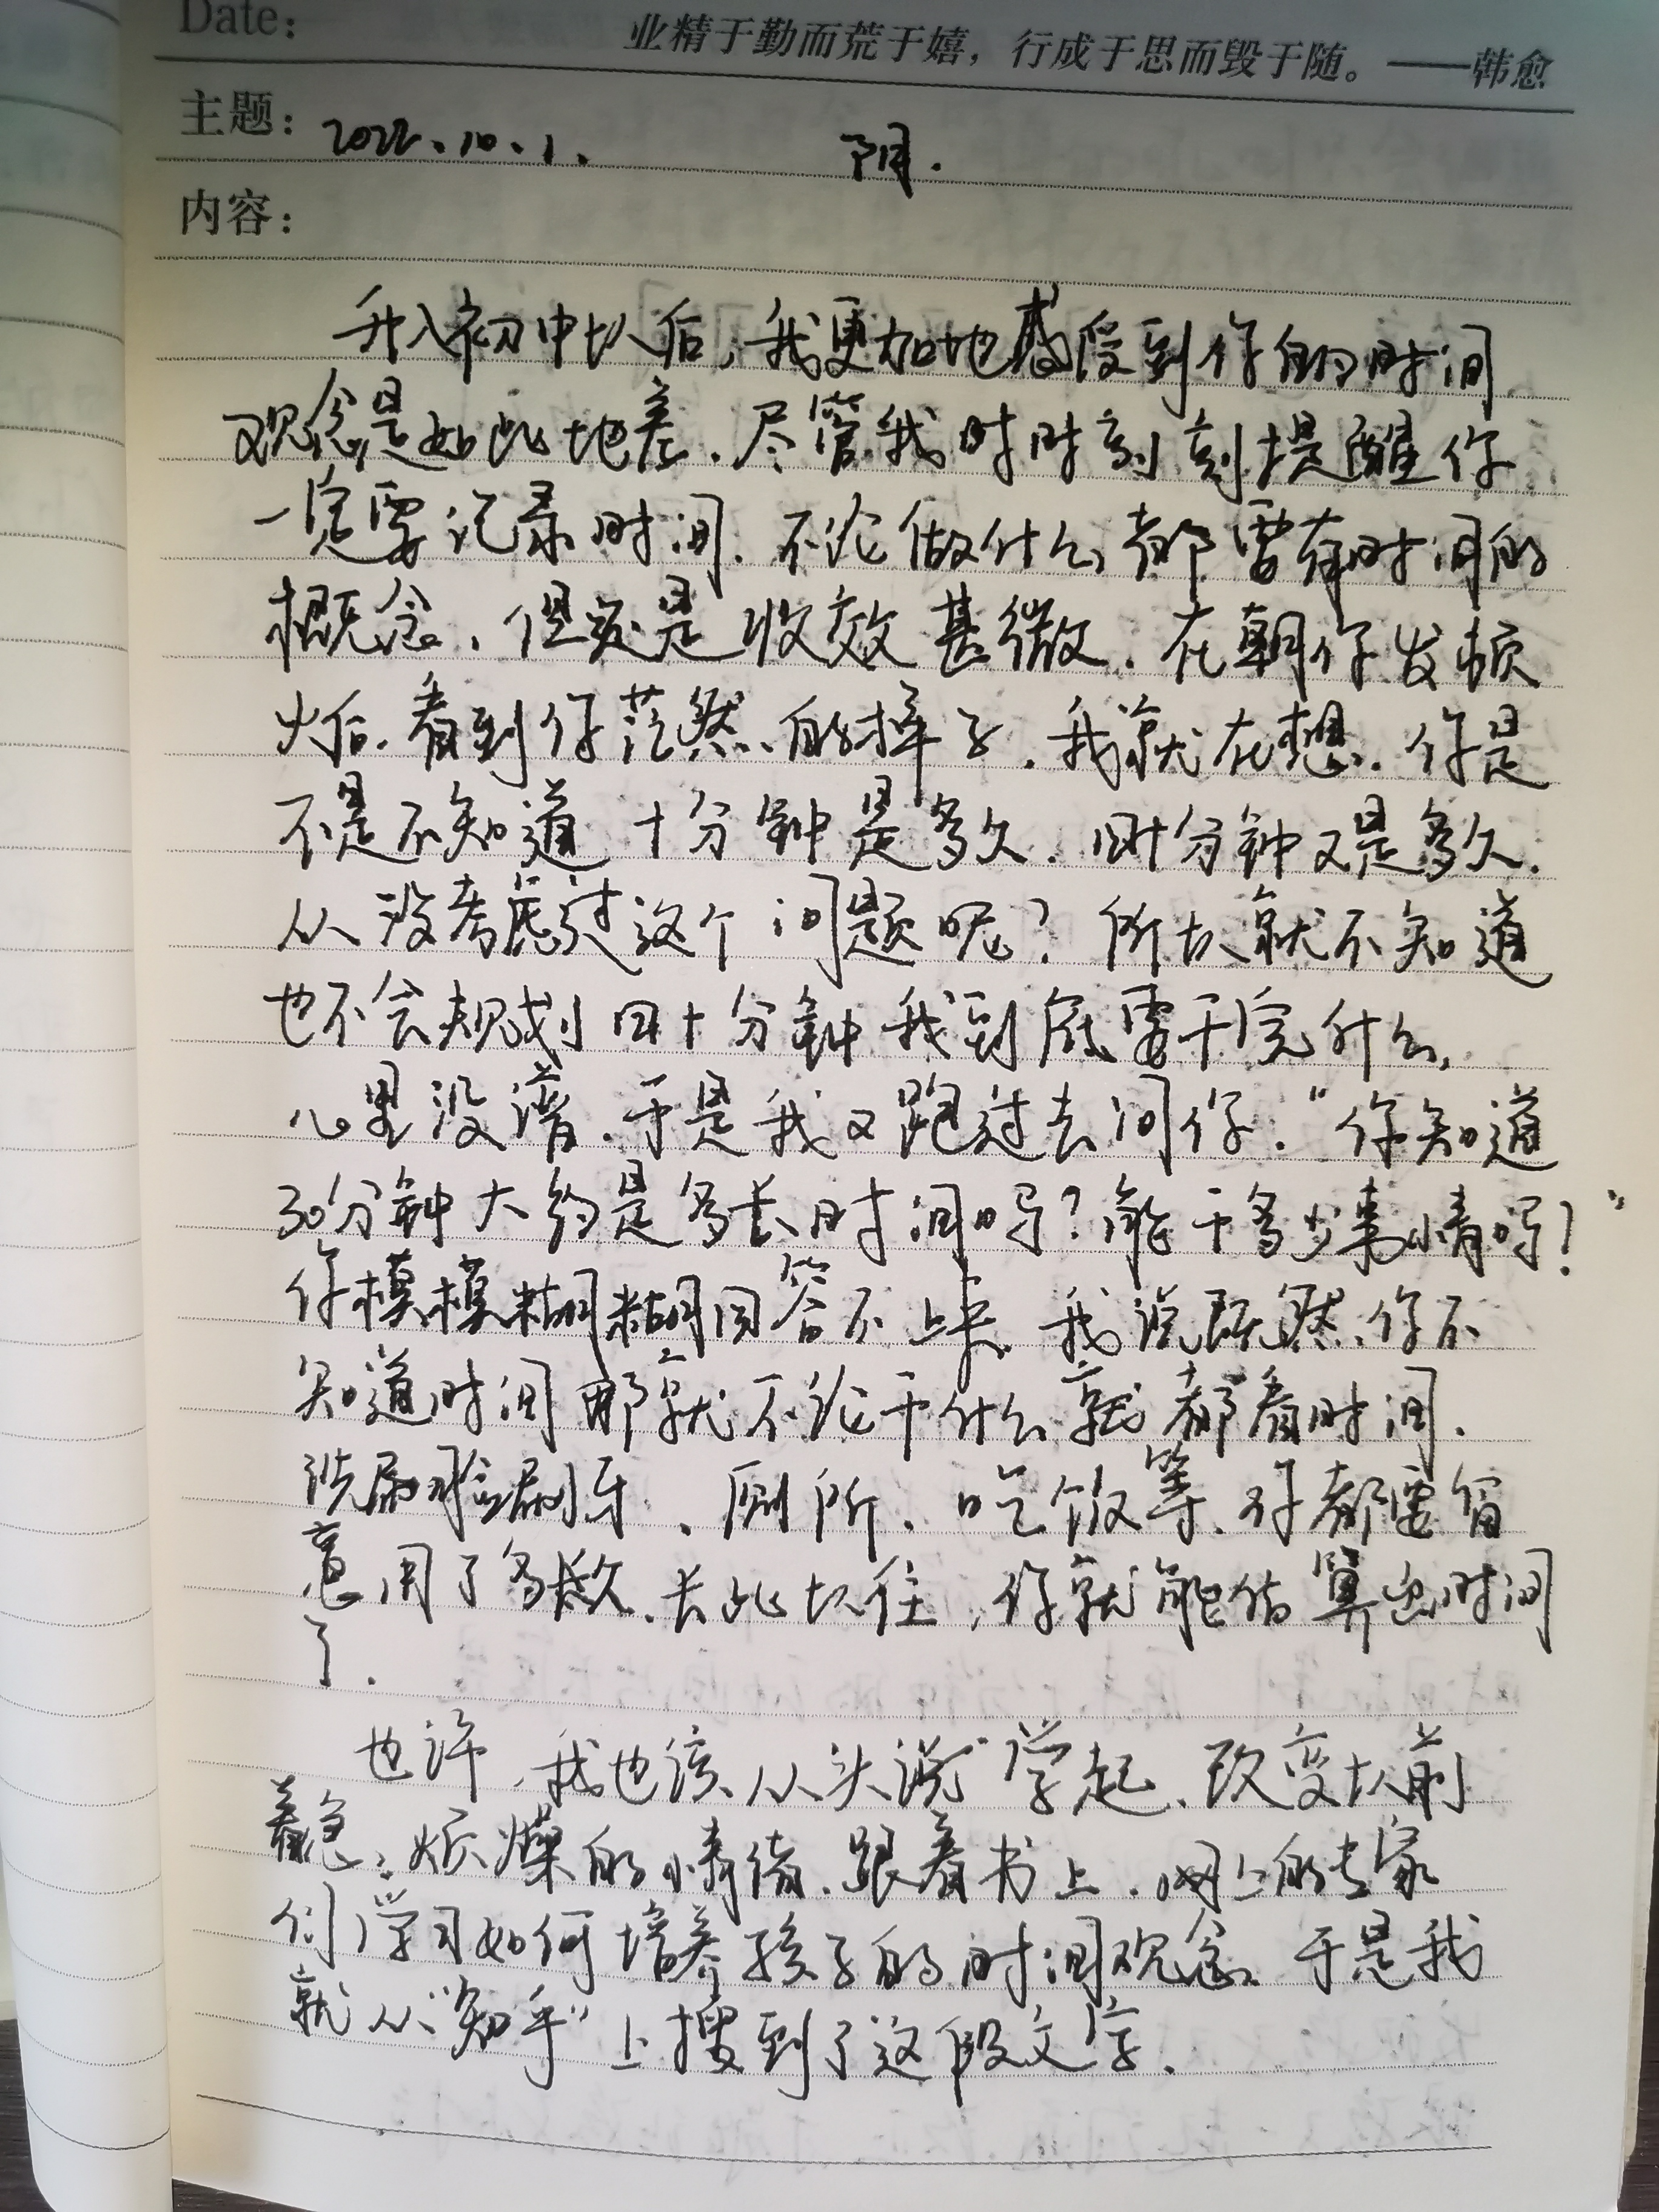 Date:
业精于勤而荒于嬉，行成于思而毁于随。——韩愈
主题：2022.10.1. 阴.
内容：
升入初中以后，我更加地感受到你的时间
观念是如此地差．尽管我时时刻刻提醒你
一定要记录时间．不论做什么都要有时间的
概念．但还是收效甚微．在朝你发烦
火后．看到你茫然的样子．我就在想．你是
不是不知道十分钟是多久．四十分钟又是多久．
从没考虑过这个问题呢？所以就不知道
也不会规划四十分钟我到底要干完什么，
心里没谱．于是我又跑过去问你．“你知道
30分钟大约是多长时间吗？能干多少事情吗？”
你模模糊糊回答不上来．我说既然你不
知道时间那就不论干什么就都看时间．
洗脸刷牙、厕所、吃饭等．你都要留
意用了多久．长此以往，你就能估算出时间
了．
也许，我也该从头学起、改变以前
着急、烦燥的情绪．跟着书上、网上的专家
们学习如何培养孩子的时间观念．于是我
就从“知乎”上搜到了这段文字．